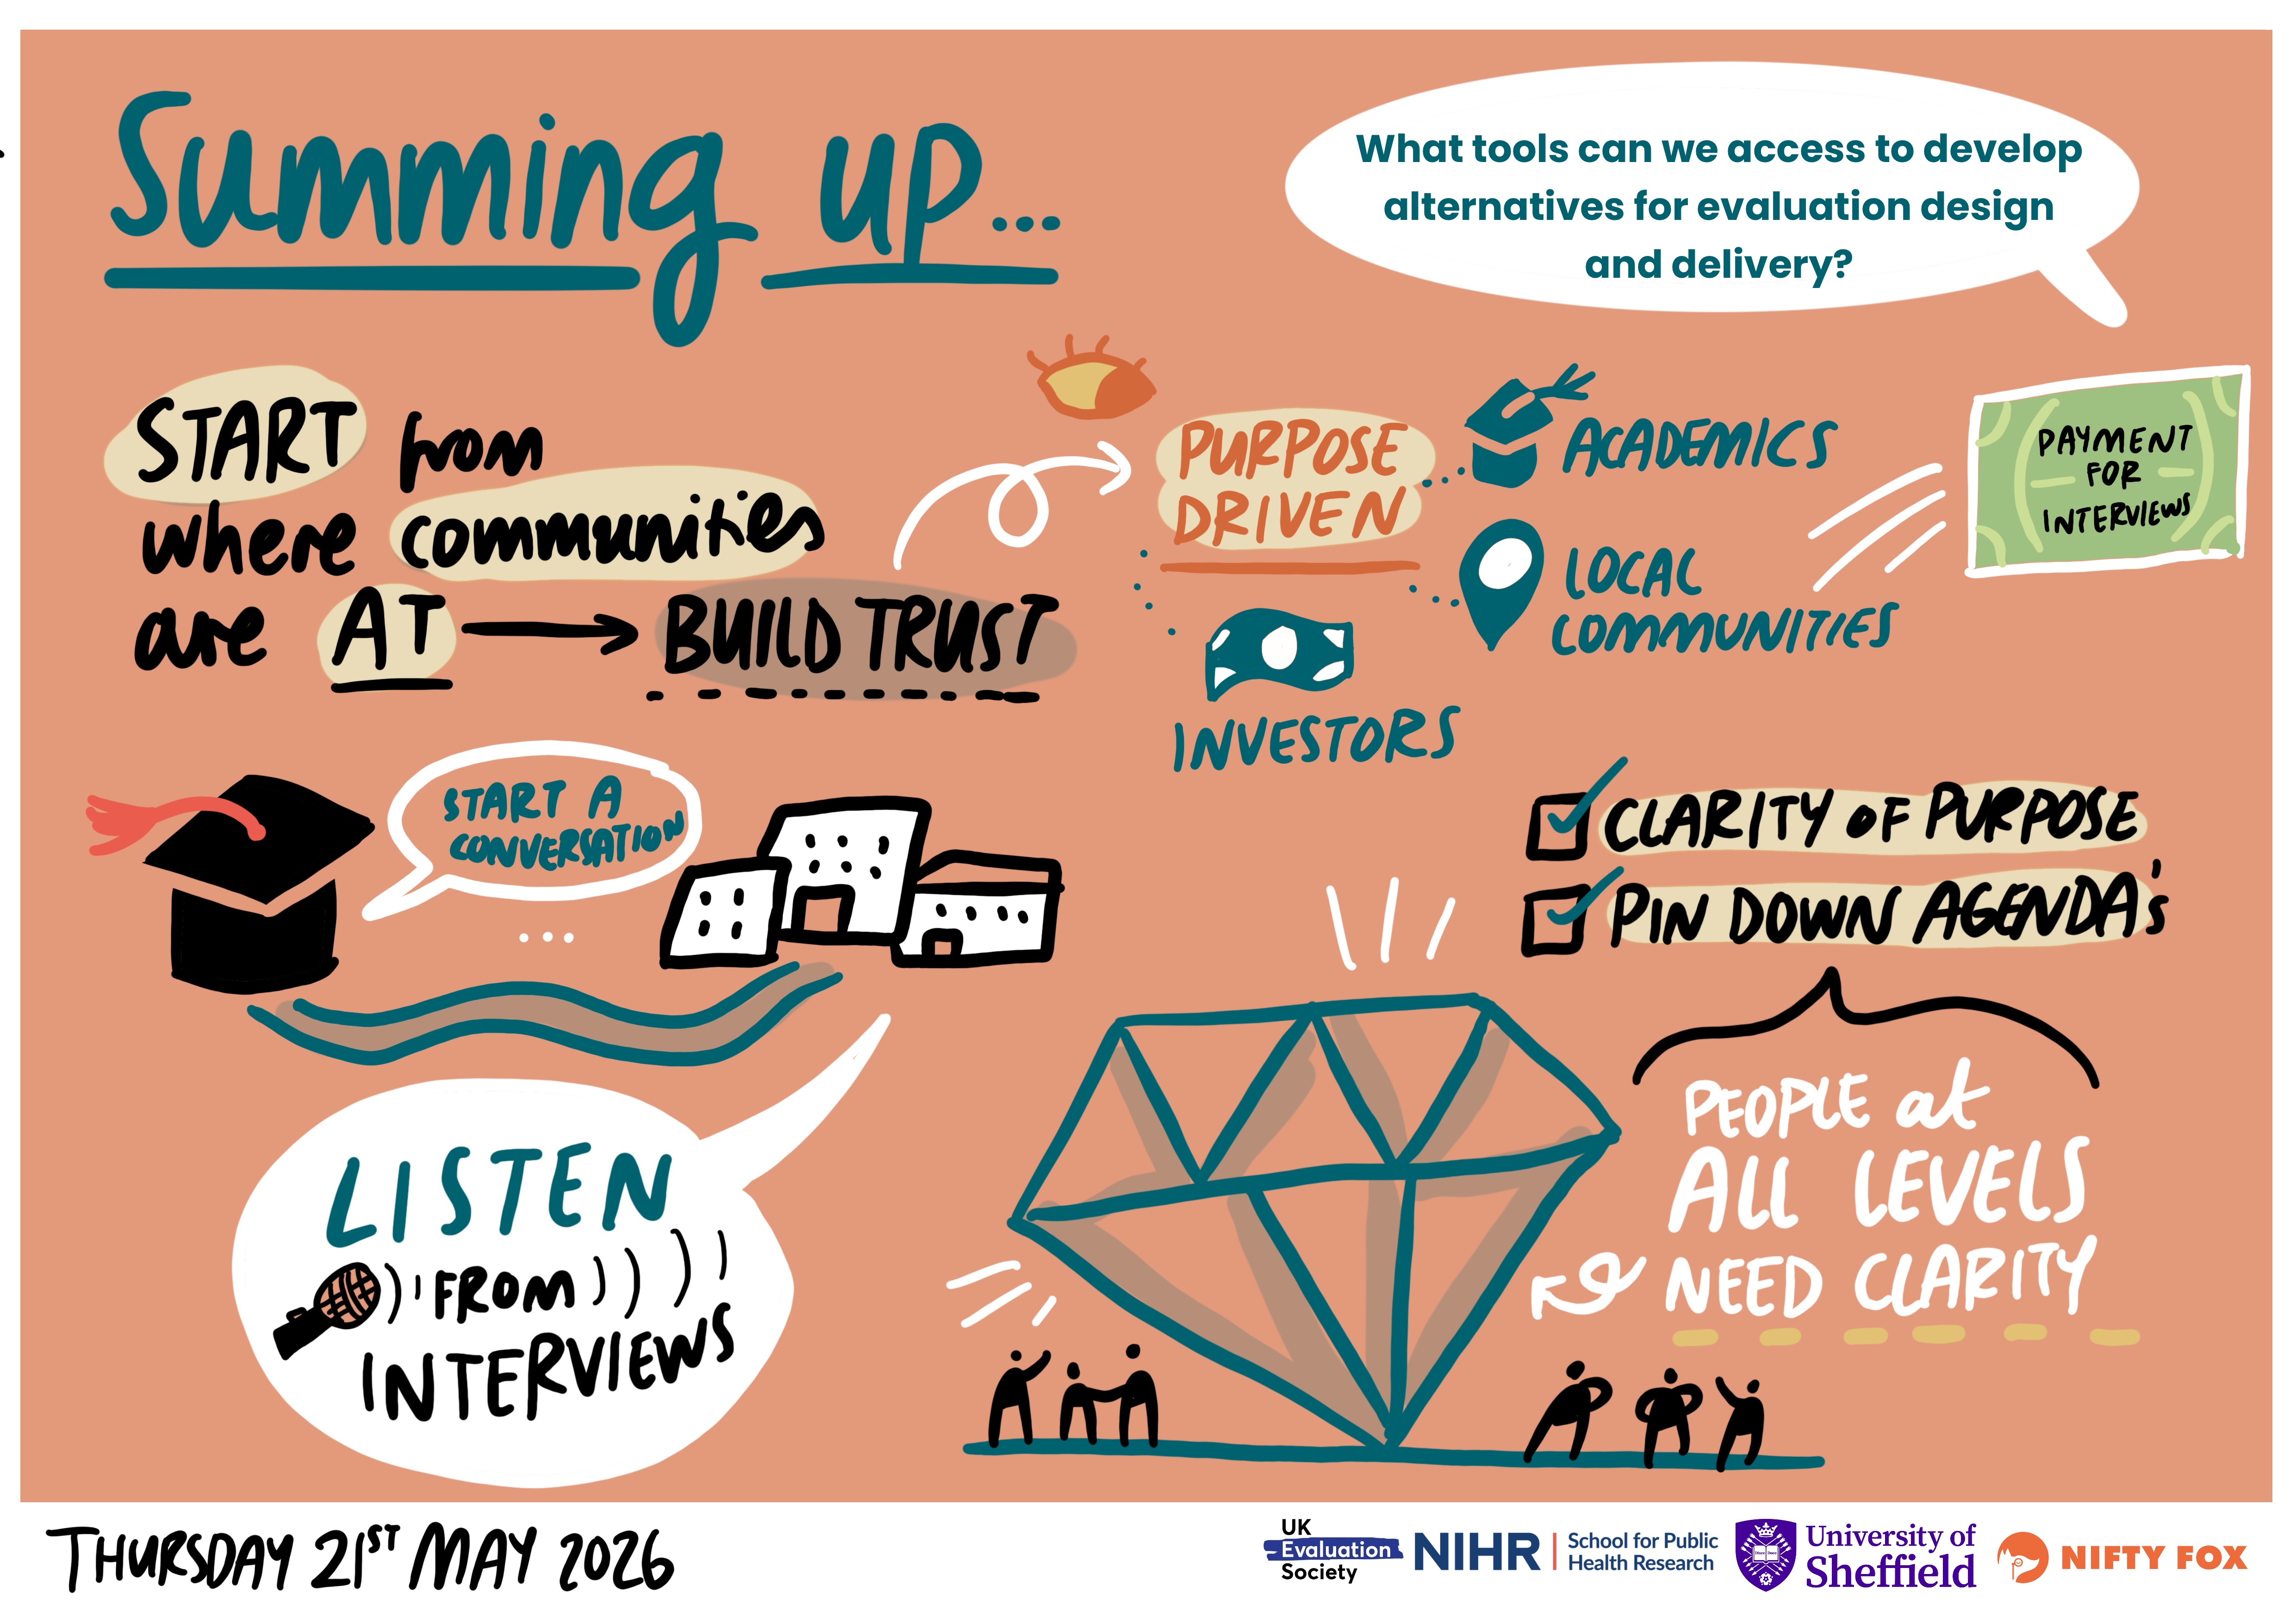 Summing up...
What tools can we access to develop
alternatives for evaluation design
and delivery?
START from
where communities
are AT
BUILD TRUST
PURPOSE
DRIVEN
ACADEMICS
LOCAL
COMMUNITIES
INVESTORS
PAYMENT
FOR
INTERVIEWS
START A
CONVERSATION
CLARITY OF PURPOSE
PIN DOWN AGENDA's
PEOPLE at
ALL LEVELS
NEED CLARITY
LISTEN
FROM
INTERVIEWS
THURSDAY 21ST MAY 2026
UK
Evaluation
Society
NIHR
School for Public
Health Research
University of
Sheffield
NIFTY FOX